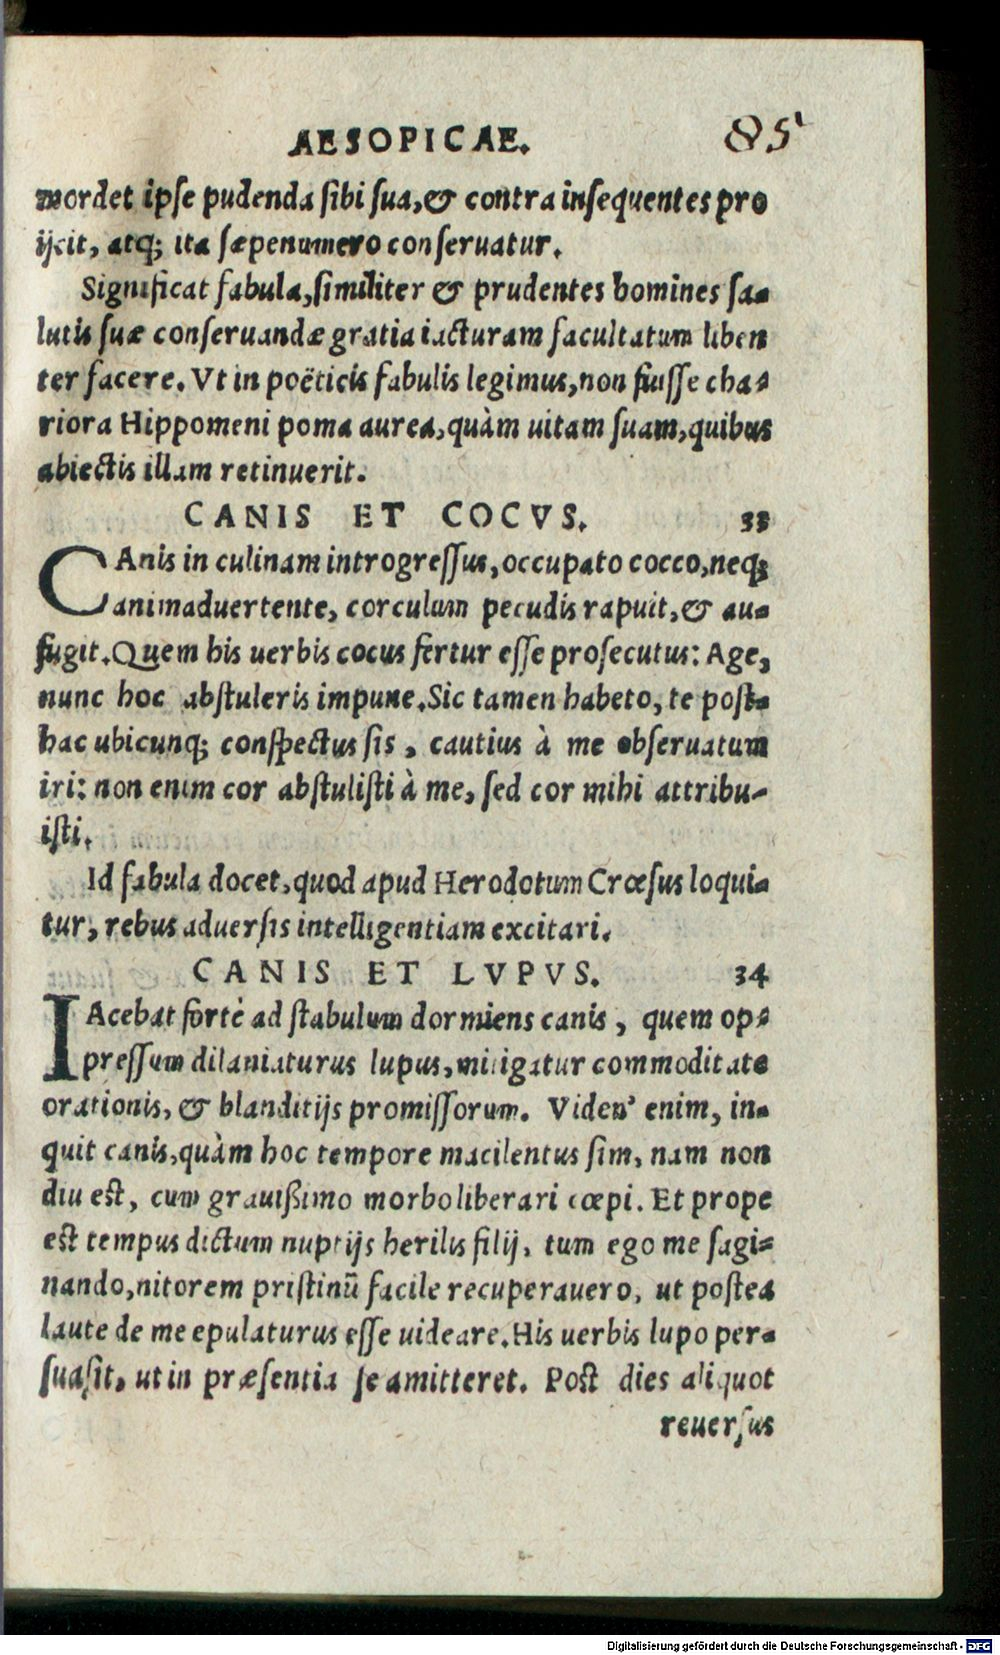 AESOPICAE. 85
mordet ipse pudenda sibi sua, & contra insequentes pro
ijcit, atq; ita sæpenumero conseruatur.
Significat fabula, similiter & prudentes homines sa-
lutis suæ conseruandæ gratia iacturam facultatum liben
ter facere. Vt in poëticis fabulis legimus, non fuisse cha-
riora Hippomeni poma aurea, quàm uitam suam, quibus
abiectis illam retinuerit.
CANIS ET COCVS. 33
CAnis in culinam introgressus, occupato cocco, neq;
animaduertente, corculum pecudis rapuit, & au-
fugit. Quem his uerbis cocus fertur esse prosecutus: Age,
nunc hoc abstuleris impune. Sic tamen habeto, te post-
hac ubicunq; conspectus sis, cautius à me obseruatum
iri: non enim cor abstulisti à me, sed cor mihi attribu-
isti.
Id fabula docet, quod apud Herodotum Crœsus loqui-
tur, rebus aduersis intelligentiam excitari.
CANIS ET LVPVS. 34
IAcebat fortè ad stabulum dormiens canis, quem op-
pressum dilaniaturus lupus, mitigatur commoditate
orationis, & blanditijs promissorum. Viden' enim, in-
quit canis, quàm hoc tempore macilentus sim, nam non
diu est, cum grauißimo morbo liberari cœpi. Et prope
est tempus dictum nuptijs herilis filij, tum ego me sagi-
nando, nitorem pristinũ facile recuperauero, ut postea
laute de me epulaturus esse uideare. His uerbis lupo per-
suasit, ut in præsentia se amitteret. Post dies aliquot
reuersus
Digitalisierung gefördert durch die Deutsche Forschungsgemeinschaft - DFG